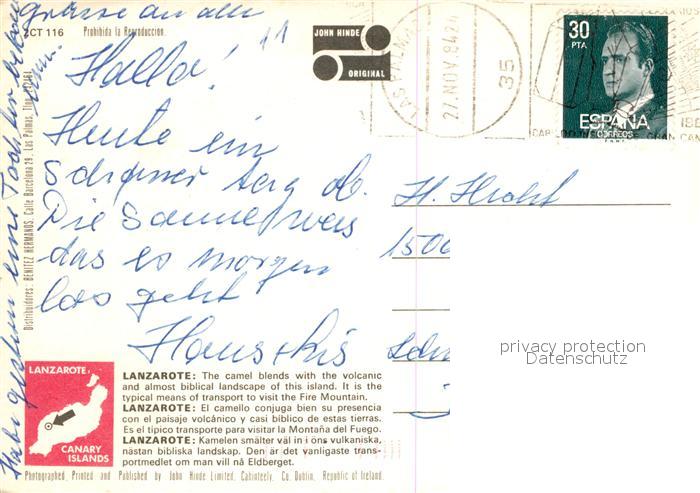 Grüsse an alle
ZCT 116 Prohibida la Reproducción.
JOHN HINDE
ORIGINAL
LAS PALMAS
27 NOV 84
35
30
PTA
ESPAÑA
CORREOS
Hallo!
Heute ein
Schöner Tag ob.
Die Sonne weis
das es morgen
los geht
Hans + Kris
Habe gestern eine Tochter
H. Hrolt
1500
privacy protection
Datenschutz
Distribuidores: BENITEZ HERMANOS, Calle Barcelona 29, Las Palmas,
LANZAROTE
CANARY
ISLANDS
LANZAROTE: The camel blends with the volcanic
and almost biblical landscape of this island. It is the
typical means of transport to visit the Fire Mountain.
LANZAROTE: El camello conjuga bien su presencia
con el paisaje volcánico y casi bíblico de estas tierras.
Es el típico transporte para visitar la Montaña del Fuego.
LANZAROTE: Kamelen smälter väl in i öns vulkaniska,
nästan bibliska landskap. Den är det vanligaste trans-
portmedlet om man vill nå Eldberget.
Photographed, Printed and Published by John Hinde Limited, Cabinteely, Co. Dublin, Republic of Ireland.